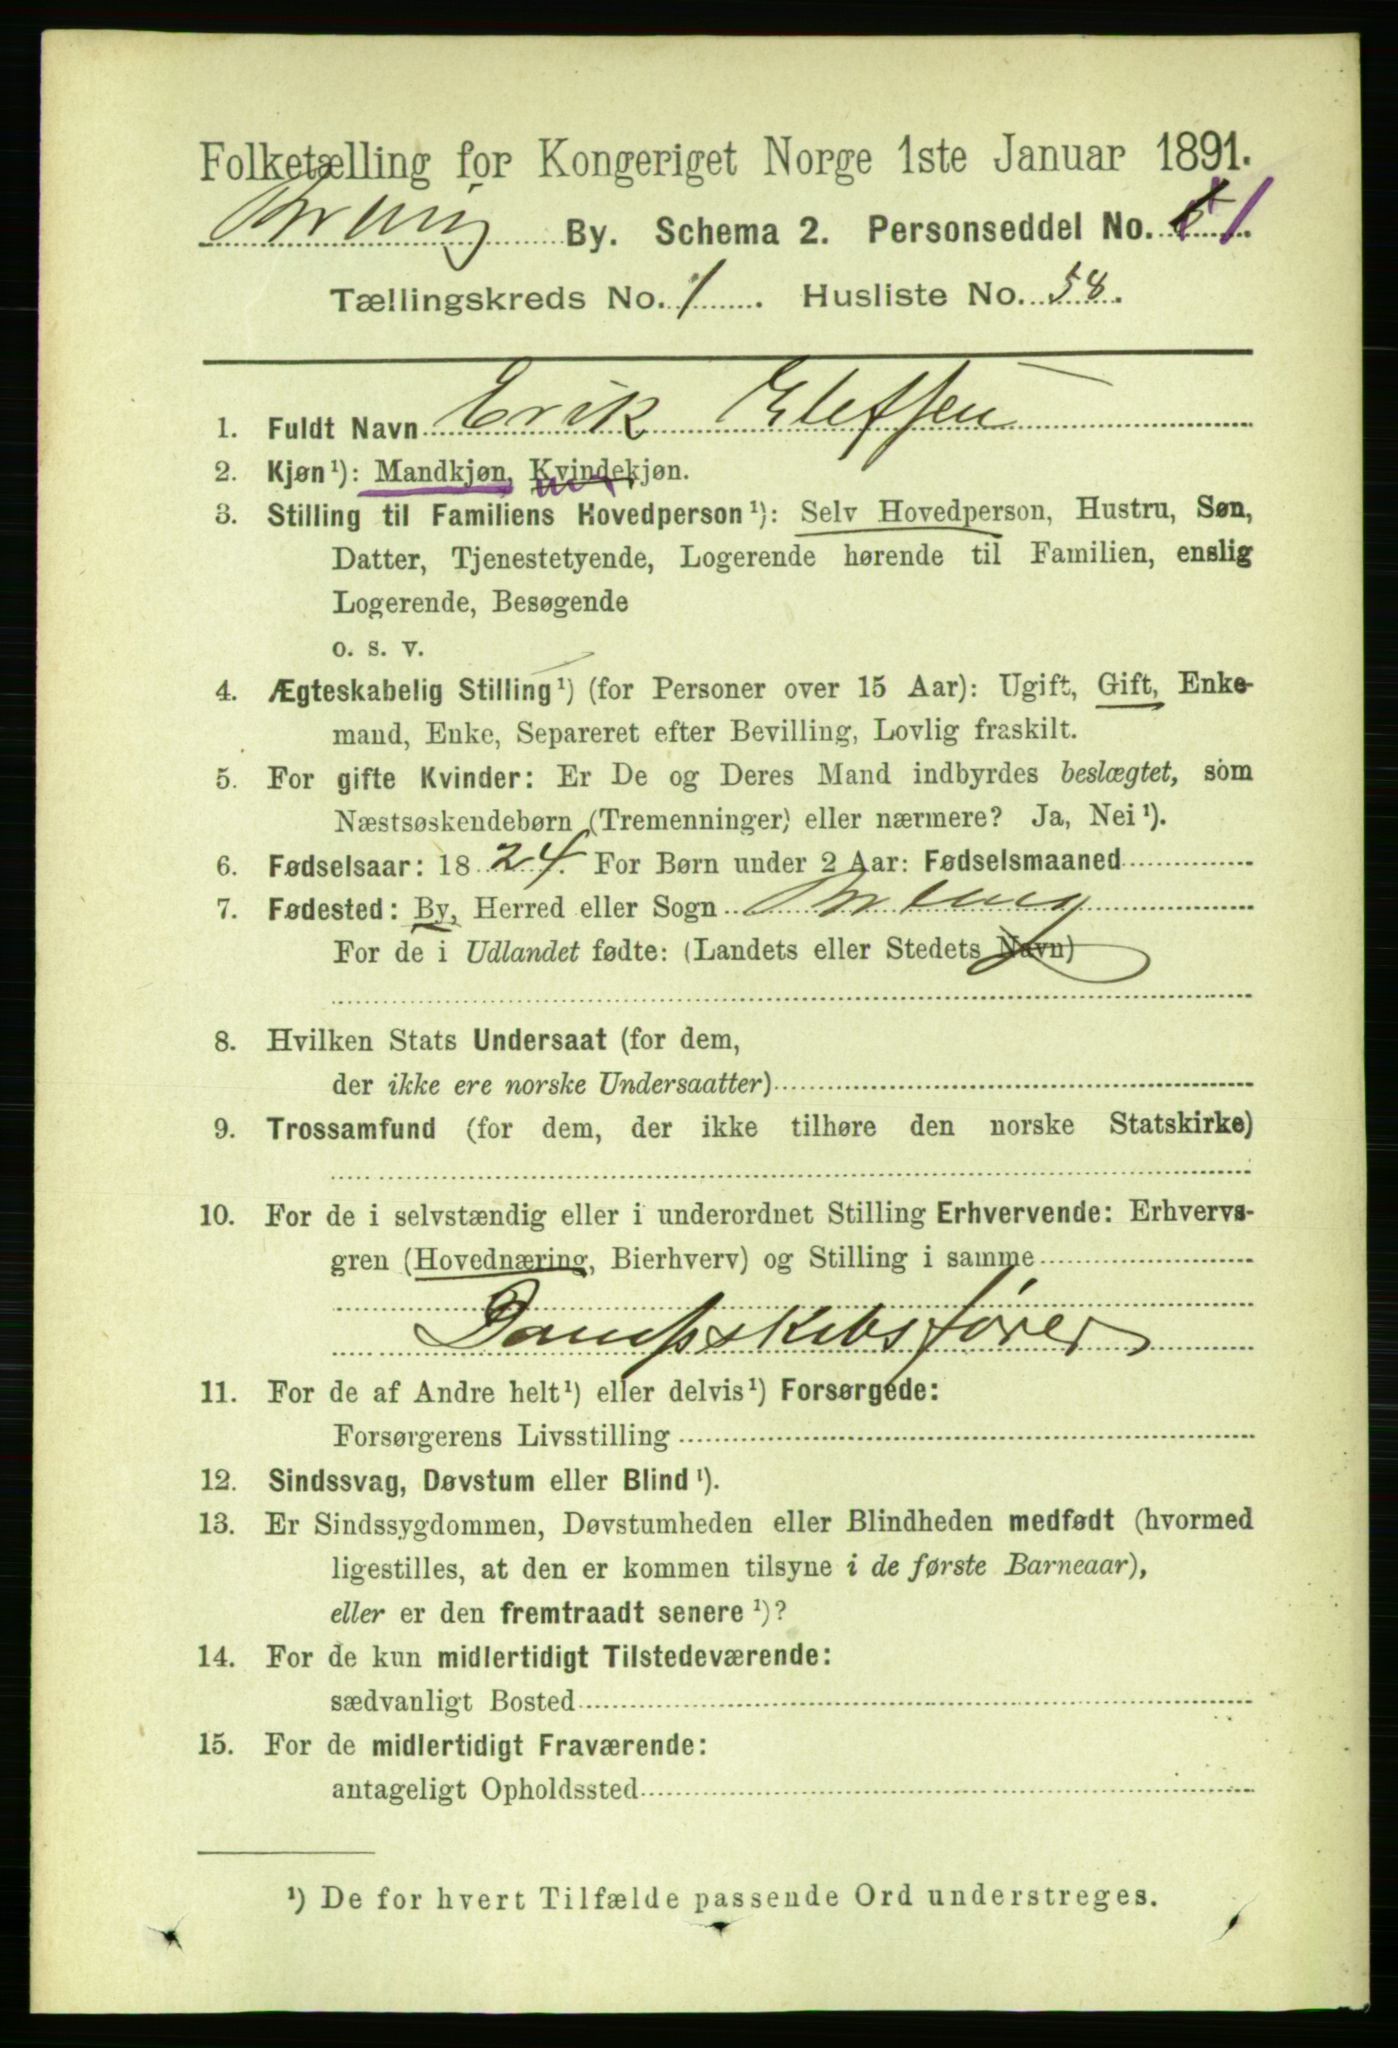 Folketælling for Kongeriget Norge 1ste Januar 1891.
By. Schema 2. Personseddel No. 1
Tællingskreds No. 1. Husliste No. 58.
1. Fuldt Navn Erik Elefsen
2. Kjøn¹): Mandkjøn, Kvindekjøn.
3. Stilling til Familiens Hovedperson¹): Selv Hovedperson, Hustru, Søn,
Datter, Tjenestetyende, Logerende hørende til Familien, enslig
Logerende, Besøgende
o. s. v.
4. Ægteskabelig Stilling¹) (for Personer over 15 Aar): Ugift, Gift, Enke-
mand, Enke, Separeret efter Bevilling, Lovlig fraskilt.
5. For gifte Kvinder: Er De og Deres Mand indbyrdes beslægtet, som
Næstsøskendebørn (Tremenninger) eller nærmere? Ja, Nei¹).
6. Fødselsaar: 1824. For Børn under 2 Aar: Fødselsmaaned
7. Fødested: By, Herred eller Sogn
For de i Udlandet fødte: (Landets eller Stedets Navn)
8. Hvilken Stats Undersaat (for dem,
der ikke ere norske Undersaatter)
9. Trossamfund (for dem, der ikke tilhøre den norske Statskirke)
10. For de i selvstændig eller i underordnet Stilling Erhvervende: Erhvervs-
gren (Hovednæring, Bierhverv) og Stilling i samme
Dampskibsfører
11. For de af Andre helt¹) eller delvis¹) Forsørgede:
Forsørgerens Livsstilling
12. Sindssvag, Døvstum eller Blind¹).
13. Er Sindssygdommen, Døvstumheden eller Blindheden medfødt (hvormed
ligestilles, at den er kommen tilsyne i de første Barneaar),
eller er den fremtraadt senere¹)?
14. For de kun midlertidigt Tilstedeværende:
sædvanligt Bosted
15. For de midlertidigt Fraværende:
antageligt Opholdssted
¹) De for hvert Tilfælde passende Ord understreges.